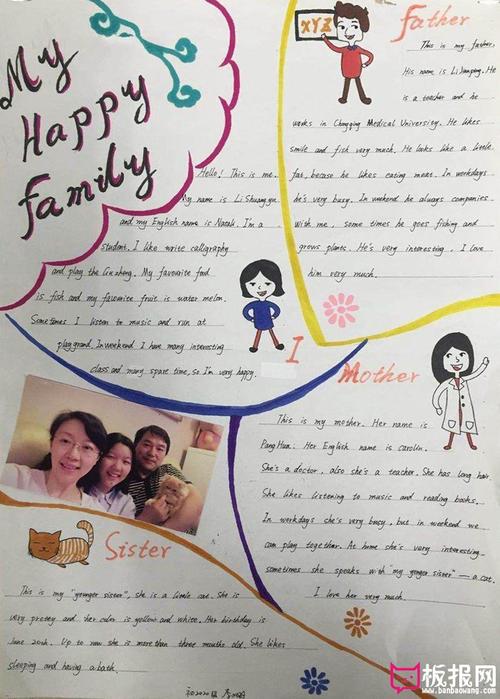 My
Happy
Family
Hello! This is me.
My name is Li Shuangyu
and my English name is Natali. I'm a
student. I like write calligraphy
and play the Guzheng. My favourite food
is fish and my favourite fruit is water melon.
Sometimes I listen to music and run at
playgrand. In weekend I have many interesting
class and many spare time, so I'm very happy.
I
XYZ
Father
This is my father.
His name is Li Jianping. He
is a teacher and he
works in Chongqing Medical University. He likes
smile and fish very much. He looks like a little
fat, because he likes eating meat. In workdays
he's very busy. In weekend he always companies
with me, some times he goes fishing and
grows plants. He's very interesting. I love
him very much.
Mother
This is my mother. Her name is
Pang Hua. Her English name is carolin.
She's a doctor, also she's a teacher. She has long hair
She likes listening to music and reading books.
In workdays she's very busy, but in weekend we
can play together. At home she's very interesting.
sometimes she speaks with "my yonger sister" — a cat.
I love her very much.
Sister
This is my "younger sister", she is a little cat. She is
very pretty and her color is yellow and white. Her birthday is
June 20th. Up to now she is more than three months old. She likes
sleeping and having a bath.
初2020级
板报网
www.banbaowang.com